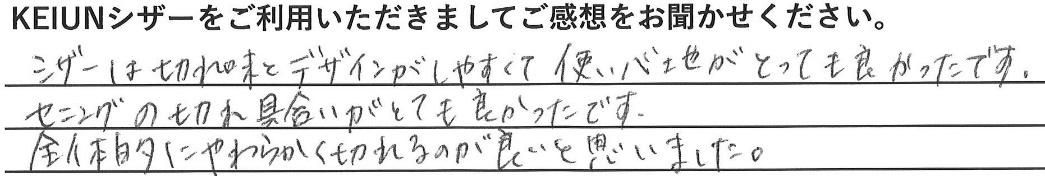 KEIUNシザーをご利用いただきましてご感想をお聞かせください。
シザーは切れ味とデザインがしやすくて使い心地がとっても良かったです。
セニングの切れ具合いがとても良かったです。
全体的にやわらかく切れるのが良いと思いました。